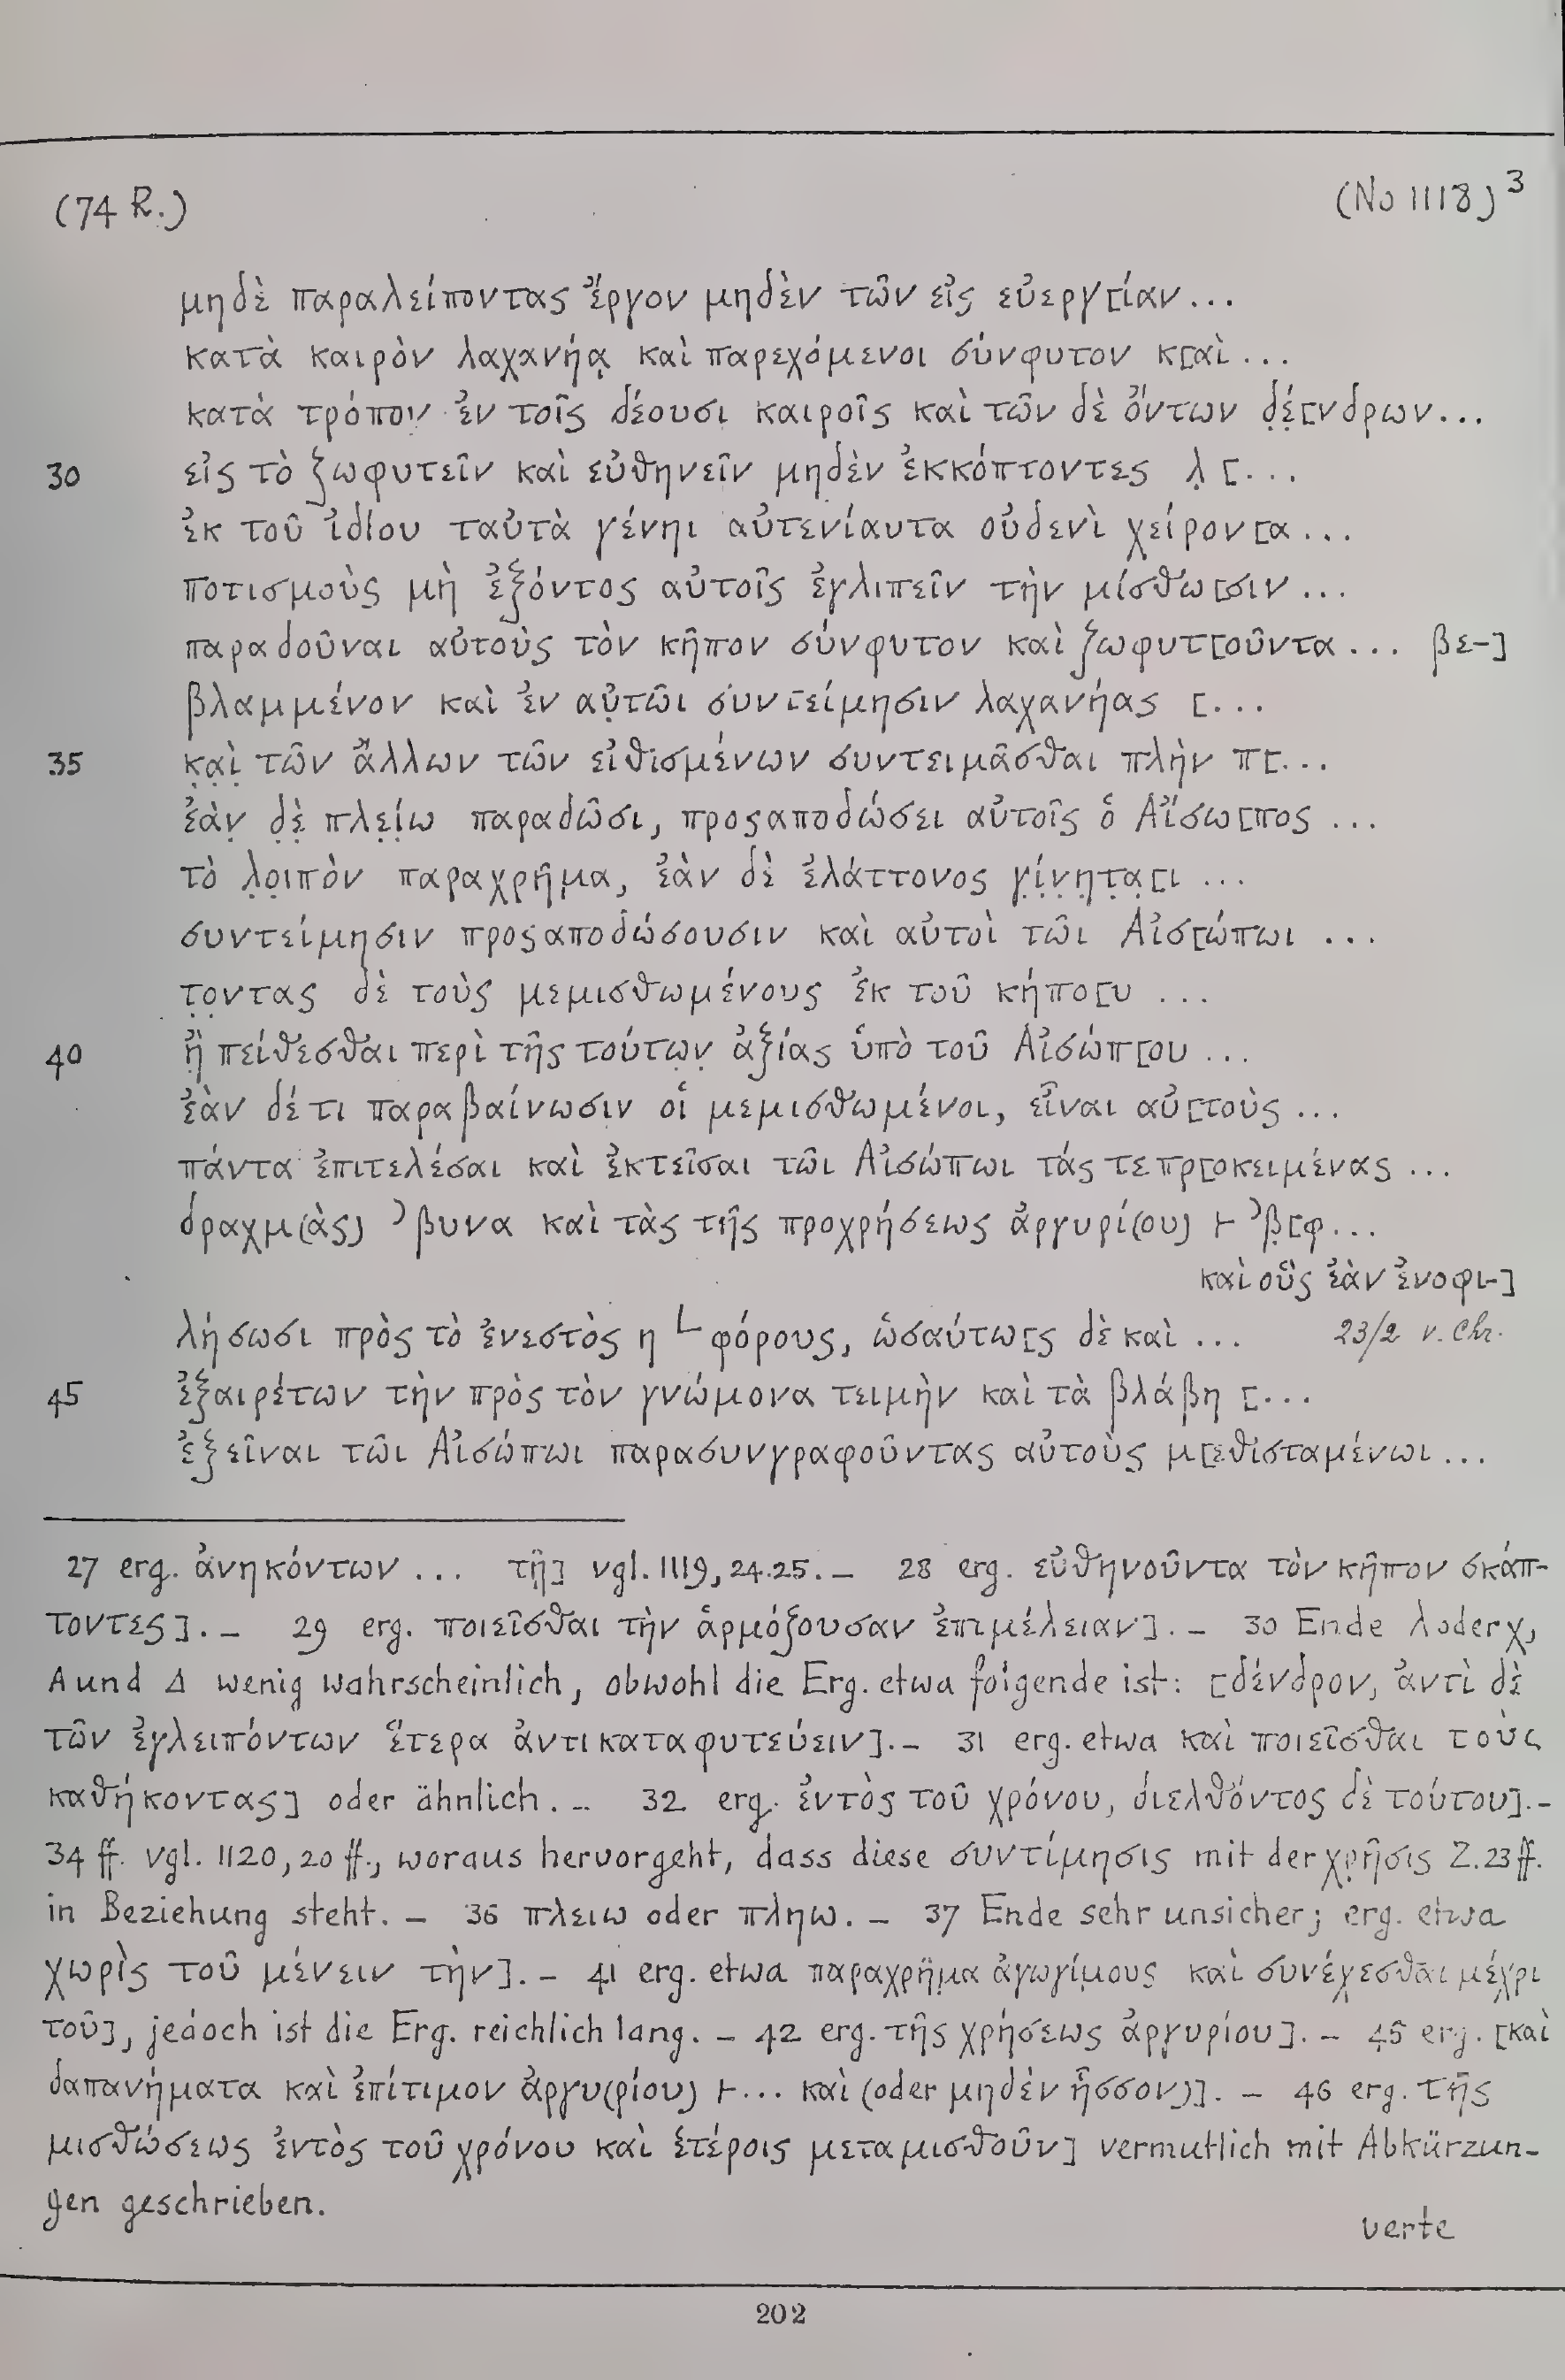 (74 R.)
(No 1118)³
μηδὲ παραλείποντας ἔργον μηδὲν τῶν εἰς εὐεργ[ίαν...
κατὰ καιρὸν λαχανήᾳ καὶ παρεχόμενοι σύνφυτον κ[αὶ...
κατὰ τρόπον ἐν τοῖς δέουσι καιροῖς καὶ τῶν δὲ ὄντων δ̣έ̣[νδρων...
30 εἰς τὸ ζωφυτεῖν καὶ εὐθηνεῖν μηδὲν ἐκκόπτοντες λ̣ [...
ἐκ τοῦ ἰδίου ταὐτὰ γένηι αὐτενίαυτα οὐδενὶ χείρον[α...
ποτισμοὺς μὴ ἐξόντος αὐτοῖς ἐγλιπεῖν τὴν μίσθω[σιν...
παραδοῦναι αὐτοὺς τὸν κῆπον σύνφυτον καὶ ζωφυτ[οῦντα... βε-]
βλαμμένον καὶ ἐν αὐ̣τῶι συντείμησιν λαχανήας [...
35 κ̣α̣ὶ̣ τῶν ἄλλων τῶν εἰθισμένων συντειμᾶσθαι πλὴν π[...
ἐὰν̣ δ̣ὲ̣ πλε̣ί̣ω παραδῶσι, προςαποδώσει αὐτοῖς ὁ Αἴσω[πος ...
τὸ λ̣ο̣ιπὸν παραχρῆμα, ἐὰν δὲ ἐλάττονος γ̣ί̣ν̣η̣τ̣α̣[ι ...
συντείμησιν προςαποδώσουσιν καὶ αὐτοὶ τῶι Αἰσ[ώπωι ...
τ̣ο̣ντας δὲ τοὺς μεμισθωμένους ἐκ τοῦ κήπο[υ ...
40 ἢ̣ πείθεσθαι περὶ τῆς τούτω̣ν̣ ἀξίας ὑπὸ τοῦ Αἰσώπ[ου ...
ἐὰν δέ τι παραβαίνωσιν οἱ μεμισθωμένοι, εἶναι αὐ[τοὺς ...
πάντα ἐπιτελέσαι καὶ ἐκτεῖσαι τῶι Αἰσώπωι τάς τε πρ[οκειμένας ...
δραχμ(ὰς) ʾβυνα καὶ τὰς τῆς προχρήσεως ἀργυρί(ου) ⊢ ʾβ̣[φ...
καὶ οὓς ἐὰν ἐνοφι-]
λήσωσι πρὸς τὸ ἐνεστὸς η └ φόρους, ὡσαύτω[ς δὲ καὶ ... 23/2 v. Chr.
45 ἐξαιρέτων τὴν πρὸς τὸν γνώμονα τειμὴν καὶ τὰ βλάβη [...
ἐξεῖναι τῶι Αἰσώπωι παρασυνγραφοῦντας αὐτοὺς μ[εθισταμένωι...
27 erg. ἀνηκόντων ... τῆ̣] vgl. 1119, 24.25. – 28 erg. εὐθηνοῦντα τὸν κῆπον σκάπ-
τοντες]. – 29 erg. ποιεῖσθαι τὴν ἁρμόζουσαν ἐπιμέλειαν]. – 30 Ende λ oder χ,
A und Δ wenig wahrscheinlich, obwohl die Erg. etwa folgende ist: [δένδρον, ἀντὶ δὲ
τῶν ἐγλειπόντων ἕτερα ἀντικαταφυτεύειν]. – 31 erg. etwa καὶ ποιεῖσθαι τοὺς
καθήκοντας] oder ähnlich. – 32 erg. ἐντὸς τοῦ χρόνου, διελθόντος δὲ τούτου]. –
34 ff. vgl. 1120, 20 ff., woraus hervorgeht, dass diese συντίμησις mit der χρῆσις Z. 23 ff.
in Beziehung steht. – 36 πλειω oder πληω. – 37 Ende sehr unsicher; erg. etwa
χωρὶς τοῦ μένειν τὴν]. – 41 erg. etwa παραχρῆμα ἀγωγίμους καὶ συνέχεσθαι μέχρι
τοῦ], jedoch ist die Erg. reichlich lang. – 42 erg. τῆς χρήσεως ἀργυρίου]. – 45 erg. [καὶ
δαπανήματα καὶ ἐπίτιμον ἀργυ(ρίου) ⊢... καὶ (oder μηδὲν ἧσσον)]. – 46 erg. τῆς
μισθώσεως ἐντὸς τοῦ χρόνου καὶ ἑτέροις μεταμισθοῦν] vermutlich mit Abkürzun-
gen geschrieben.
verte
202